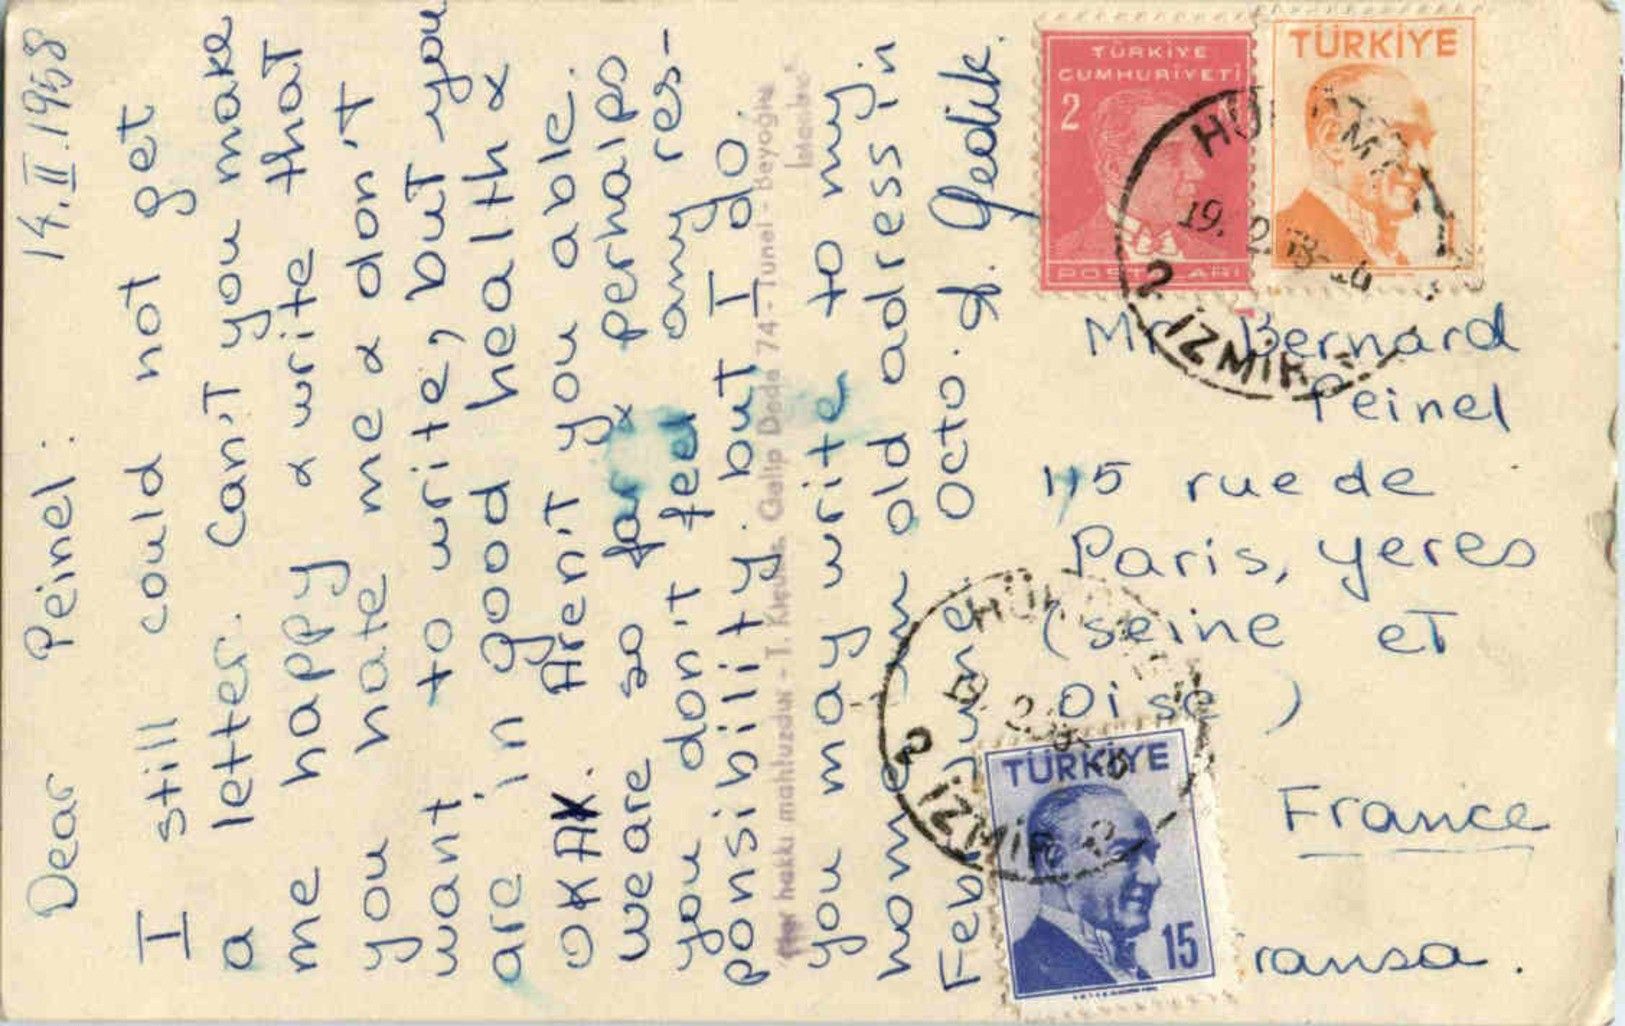 14.II.1958
Dear Peinel:
I still could not get
a letter. Can't you make
me happy & write that
you hate me & don't
want to write, but you
are in good health &
Aren't you able.
we are so far & pernalps
you don't feel any res-
ponsibility. but I do.
Her hakkı mahfuzdur - T. Galip Dede 74 - Tunel - Beyoğlu
İstanbul
you may write to my
home in old adress in
Feb June Octo. J. Gedik.
TÜRKİYE
CUMHURİYETİ
2
POSTALARI
TÜRKİYE
2 İZMİR
Mr Bernard
Peinel
115 rue de
Paris, yeres
(seine et
Oise)
2 İZMİR 2
TÜRKİYE
15
France
ransa.